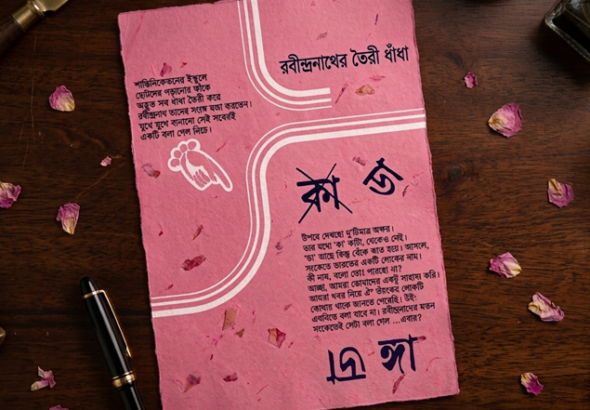 রবীন্দ্রনাথের তৈরী ধাঁধা
শান্তিনিকেতনের ইস্কুলে
ছোটদের পড়ানোর ফাঁকে
অদ্ভুত সব ধাঁধা তৈরী করে
রবীন্দ্রনাথ তাদের সংগে মজা করতেন।
মুখে মুখে বানানো সেই সবেরই
একটি বলা গেল নিচে।
ডা
উপরে দেখছো দু'টিমাত্র অক্ষর।
তার মধ্যে 'কা' কাটা, থেকেও নেই।
'ডা' আছে কিন্তু বেঁকে কাত হয়ে। আসলে,
সংকেতে ভারতের একটি লোকের নাম।
কী নাম, বলো তো? পারছো না?
আচ্ছা, আমরা তোমাদের একটু সাহায্য করি।
আমরা খবর নিয়ে ঐ লোকটি
কোথায় থাকে জানতে পেরেছি। উঁহু
এমনিতে বলা যাবে না। রবীন্দ্রনাথের মতন
সংকেতেই সেটা বলা গেল ...এবার?
ঙ্গা